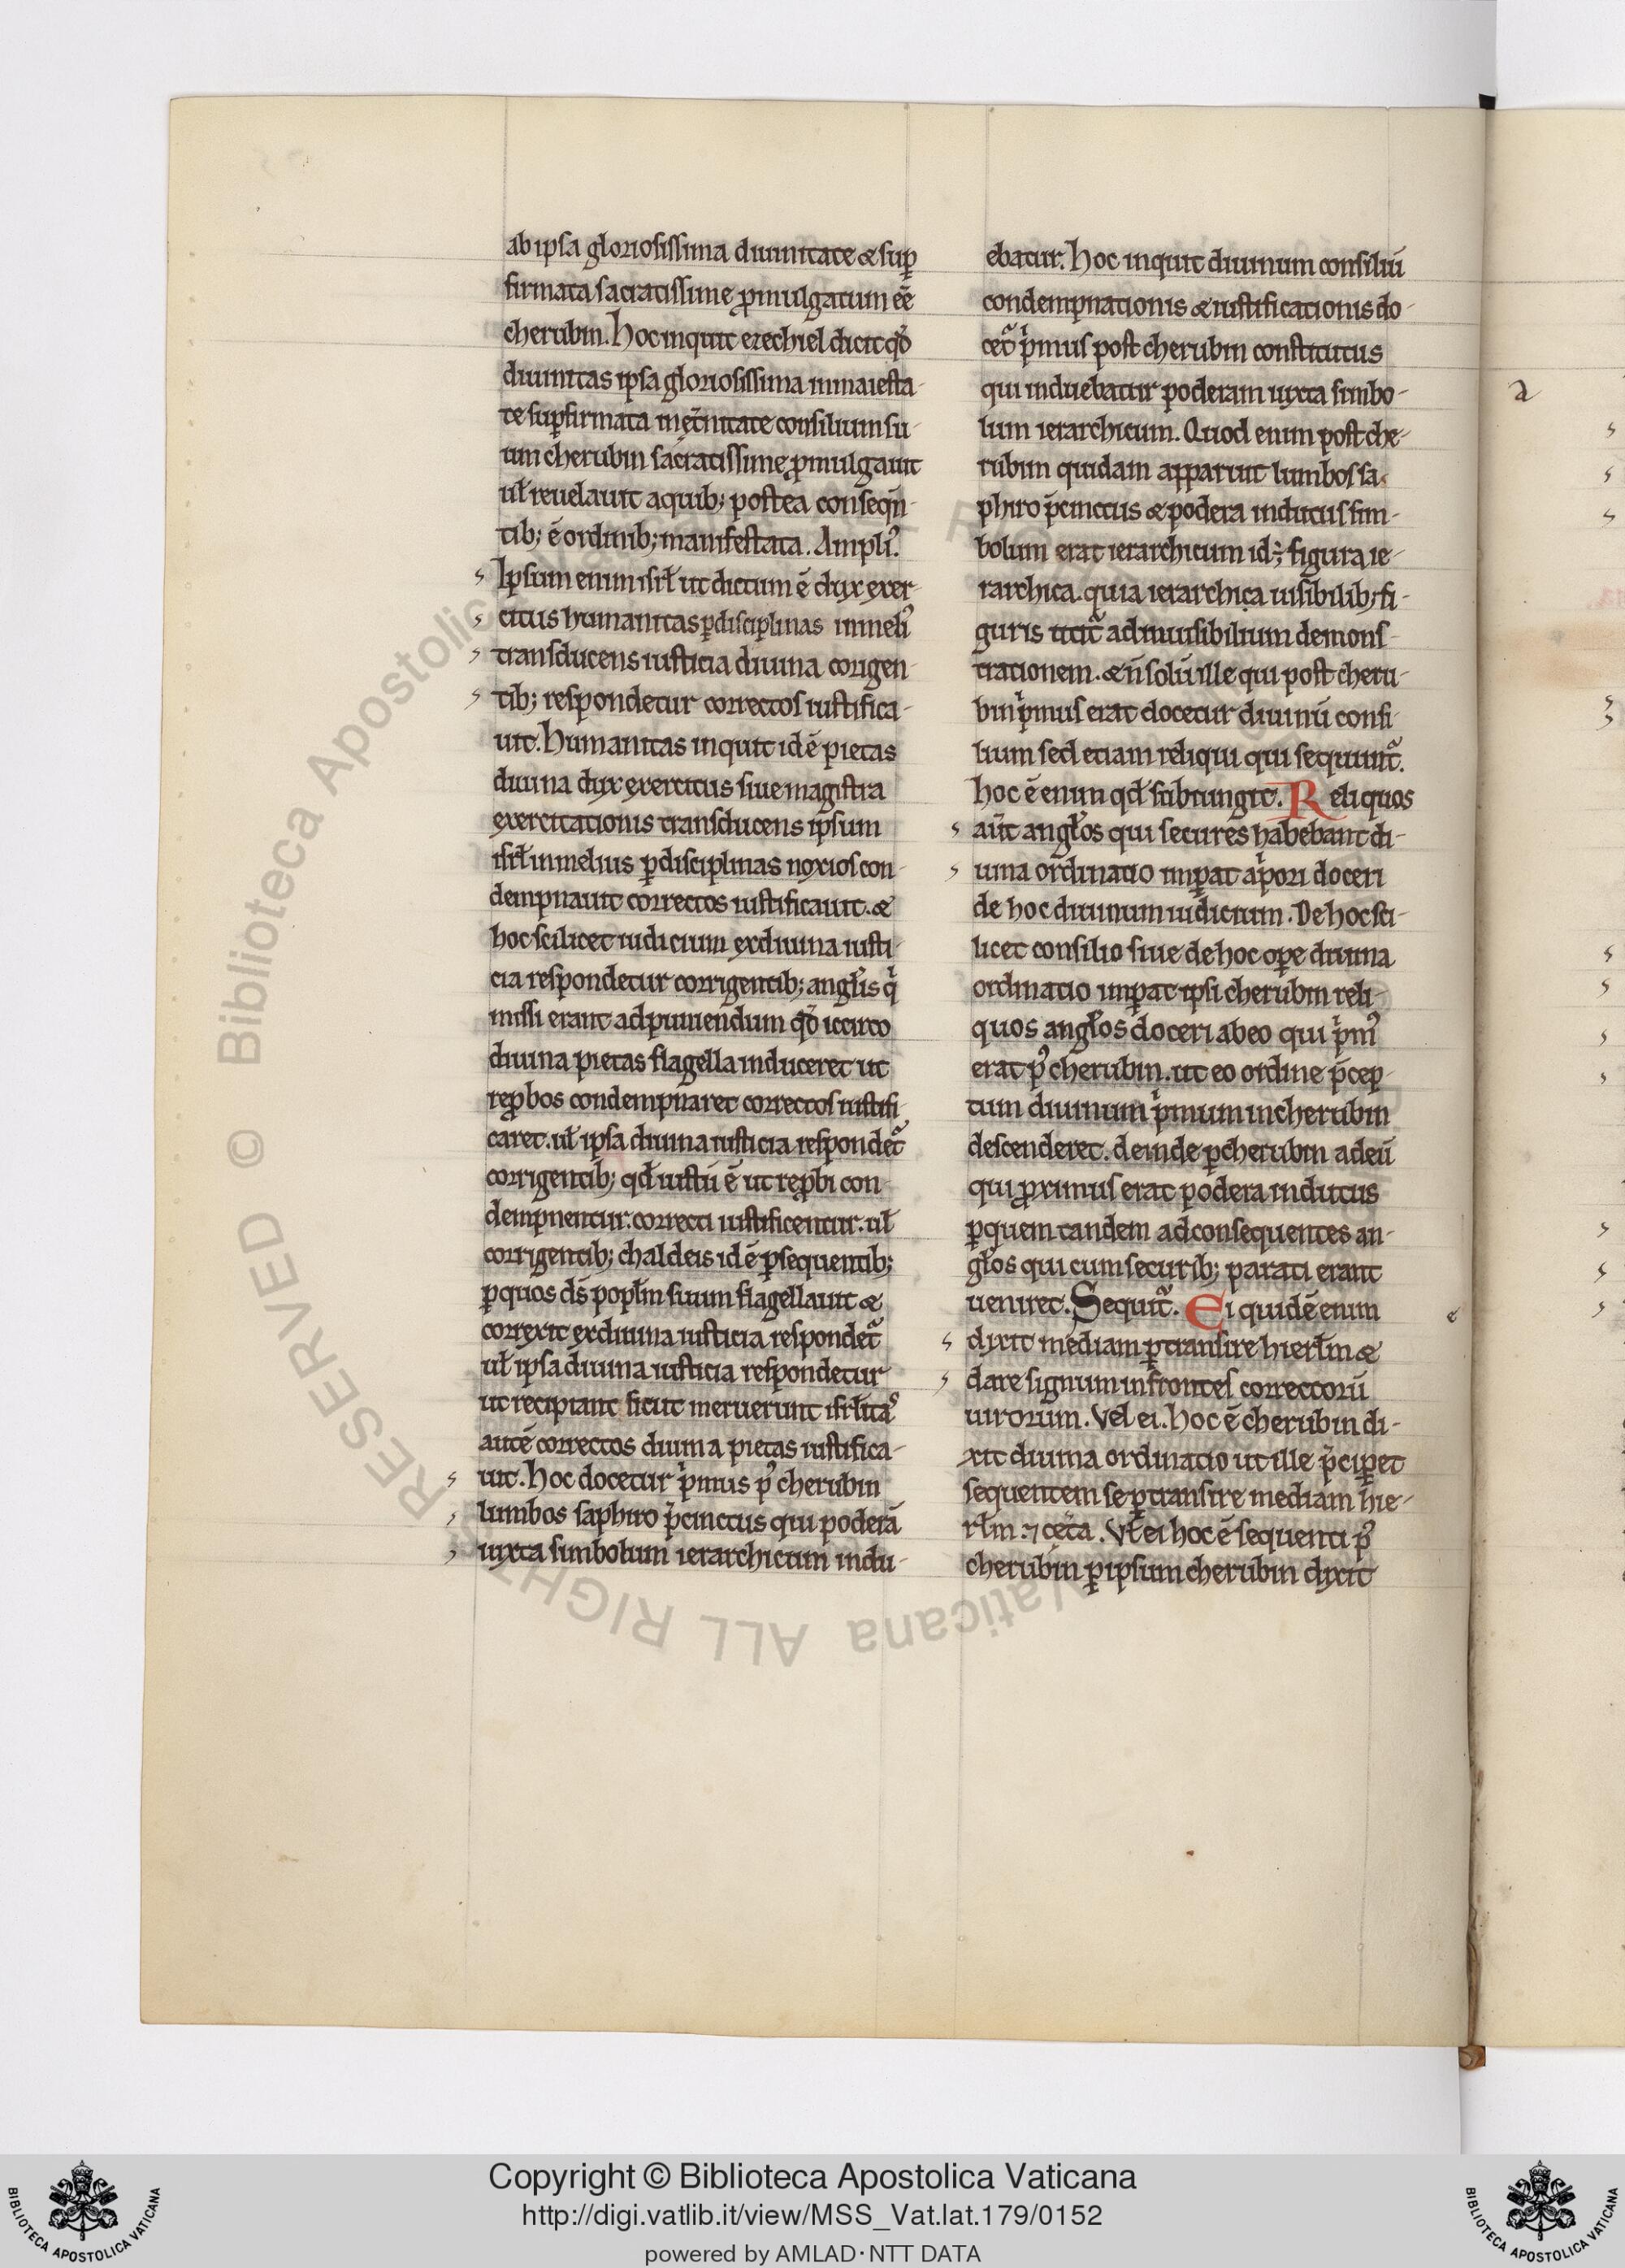 ab ipsa gloriosissima diuinitate & sup̱
firmata sacratissime ꝓmulgatum eē
cherubin. Hoc inquit ezechiel dicit qđ
diuinitas ipsa gloriosissima in maiesta-
te suꝑfirmata in et̃nitate consilium su-
um cherubin sacratissime ꝓmulgauit
uł reuelauit a quib; postea conseqn̄-
tib; ē ordinib; manifestata. Ampliꝰ.
Ipsum enim isrł ut dictum ē dux exer-
citus humanitas ꝑ disciplinas in meliꝰ
transducens iusticia diuina corigen-
tib; respondetur correctos iustifica-
uit. Humanitas inquit id ē pietas
diuina dux exercitus siue magistra
exercitationis transducens ipsum
isrł in melius ꝑ disciplinas noxios con-
dempnauit correctos iustificauit. &
hoc scilicet iudicium ex diuina iusti-
cia respondetur corrigentib; angłis qͥ
missi erant ad puniendum qđ iccirco
diuina pietas flagella induceret ut
reꝓbos condempnaret correctos iustifi-
caret. uł ipsa diuina iusticia respondet᷑
corrigentib; qđ iustū ē ut reꝓbi con-
dempnentur. correcti iustificentur. uł
corrigentib; chaldeis id ē ꝑsequentib;
ꝑ quos ds̄ popłm suum flagellauit &
correxit ex diuina iusticia respondet᷑
uł ipsa diuina iusticia respondetur
ut recipiant sicut meruerunt isrłitaꝰ
autē correctos diuina pietas iustifica-
uit. Hoc docetur pͥmus pꝰ cherubin
lumbos saphiro p̄cinctus qui poderā
iuxta simbolum ierarchicum indu-
ebatur. Hoc inquit diuinum consiliū
condempnationis & iustificationis do-
cet᷑ pͥmus post cherubin constitutus
qui induebatur poderam iuxta simbo-
lum ierarchicum. Quod enim post che-
rubin quidam apparuit lumbos sa-
phiro p̄cinctus & podera indutus sim-
bolum erat ierarchicum id; figura ie-
rarchica. quia ierarchica uisibilib; fi-
guris utit᷑ ad inuisibilium demons-
trationem. & n̄ solū ille qui post cheru-
bin pͥmus erat docetur diuinū consi-
lium sed etiam reliqui qui sequunt᷑.
hoc ē enim qđ subiungit. Reliquos
aūt angłos qui secures habebant di-
uina ordinatio imꝑat a pͥori doceri
de hoc diuinum iudicium. De hoc sci-
licet consilio siue de hoc oꝑe diuina
ordinatio imꝑat ipsi cherubin reli-
quos angłos doceri ab eo qui pͥmꝰ
erat pꝰ cherubin. ut eo ordine p̄cep-
tum diuinum pͥmum in cherubin
descenderet. deinde ꝑ cherubin ad eū
qui ꝓximus erat podera indutus
ꝑ quem tandem ad consequentes an-
głos qui cum securib; parati erant
ueniret. Sequit᷑. Ei quidē enim
dixit mediam ꝑtransire hierłm &
dare signum in frontes correctorū
uirorum. Vel ei. hoc ē cherubin di-
xit diuina ordinatio ut ille p̄ciꝑet
sequentem se ꝑtransire mediam hie-
rłm ⁊ cet̃a. Vł ei hoc ē sequenti pꝰ
cherubin ꝑ ipsum cherubin dixit
a
e
© Biblioteca Apostolica Vaticana ALL RIGHTS RESERVED
Copyright © Biblioteca Apostolica Vaticana
http://digi.vatlib.it/view/MSS_Vat.lat.179/0152
powered by AMLAD·NTT DATA
BIBLIOTECA APOSTOLICA VATICANA
BIBLIOTECA APOSTOLICA VATICANA